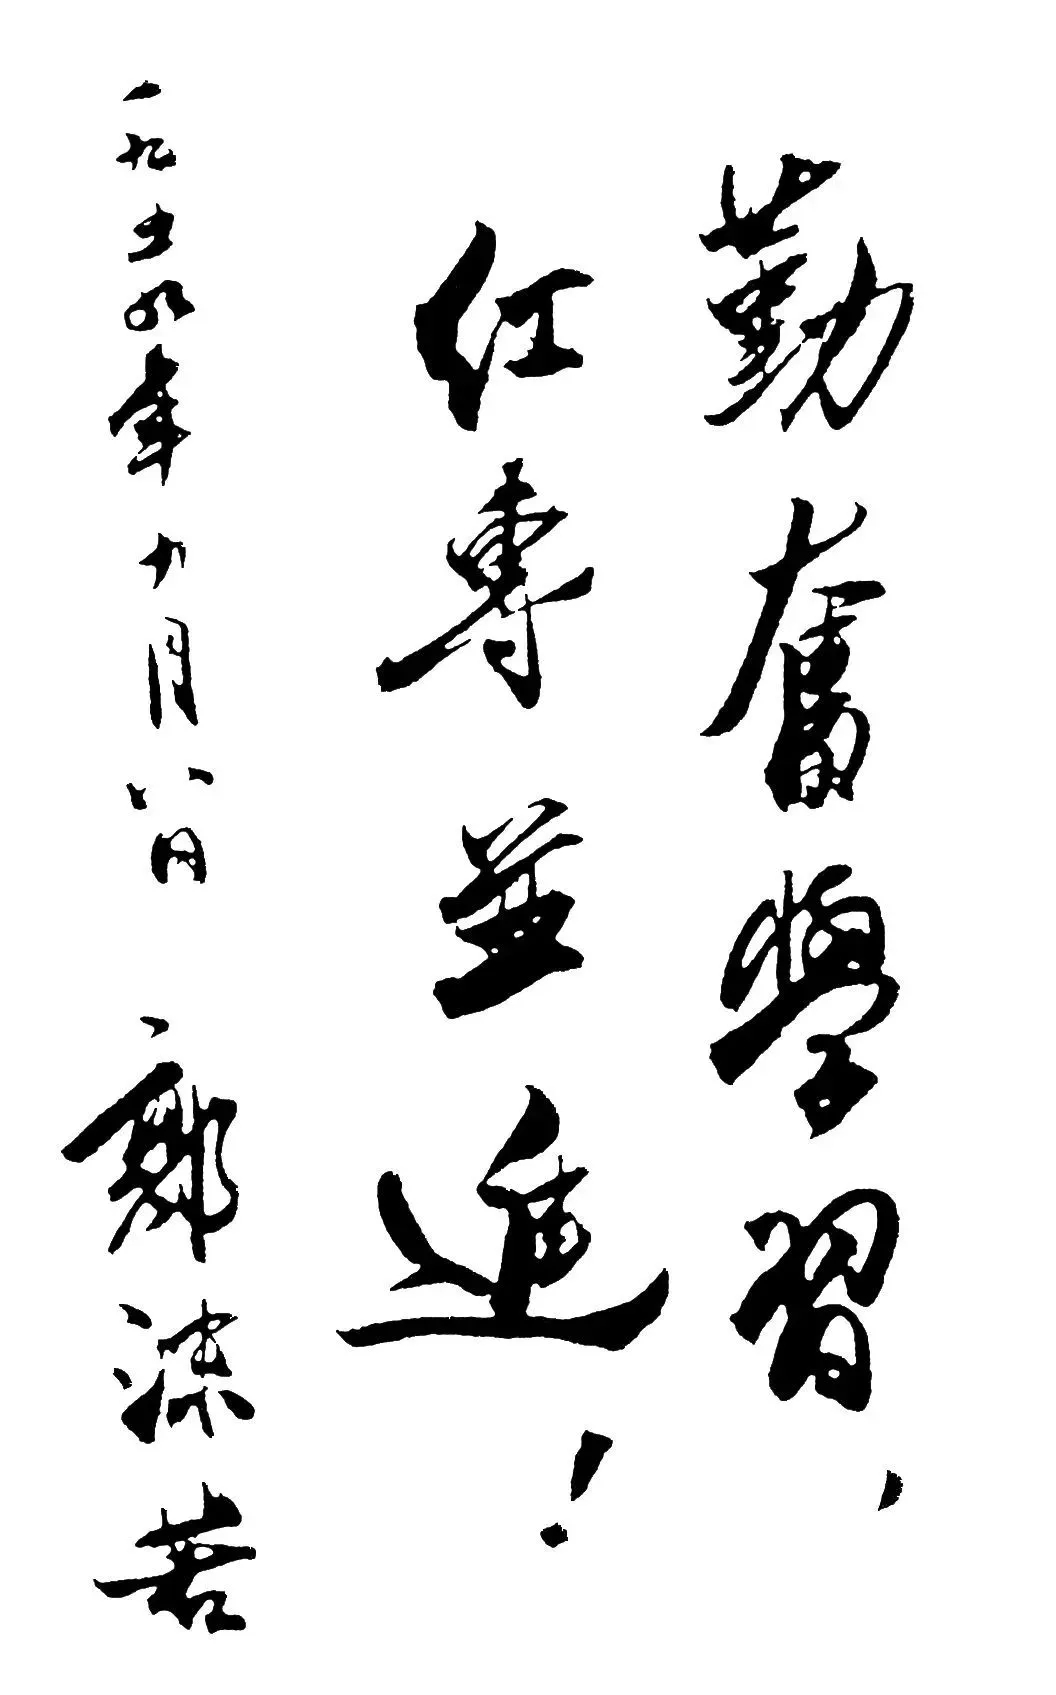 勤奮學習、
红專並進!
一九五九年九月八日 郭沫若